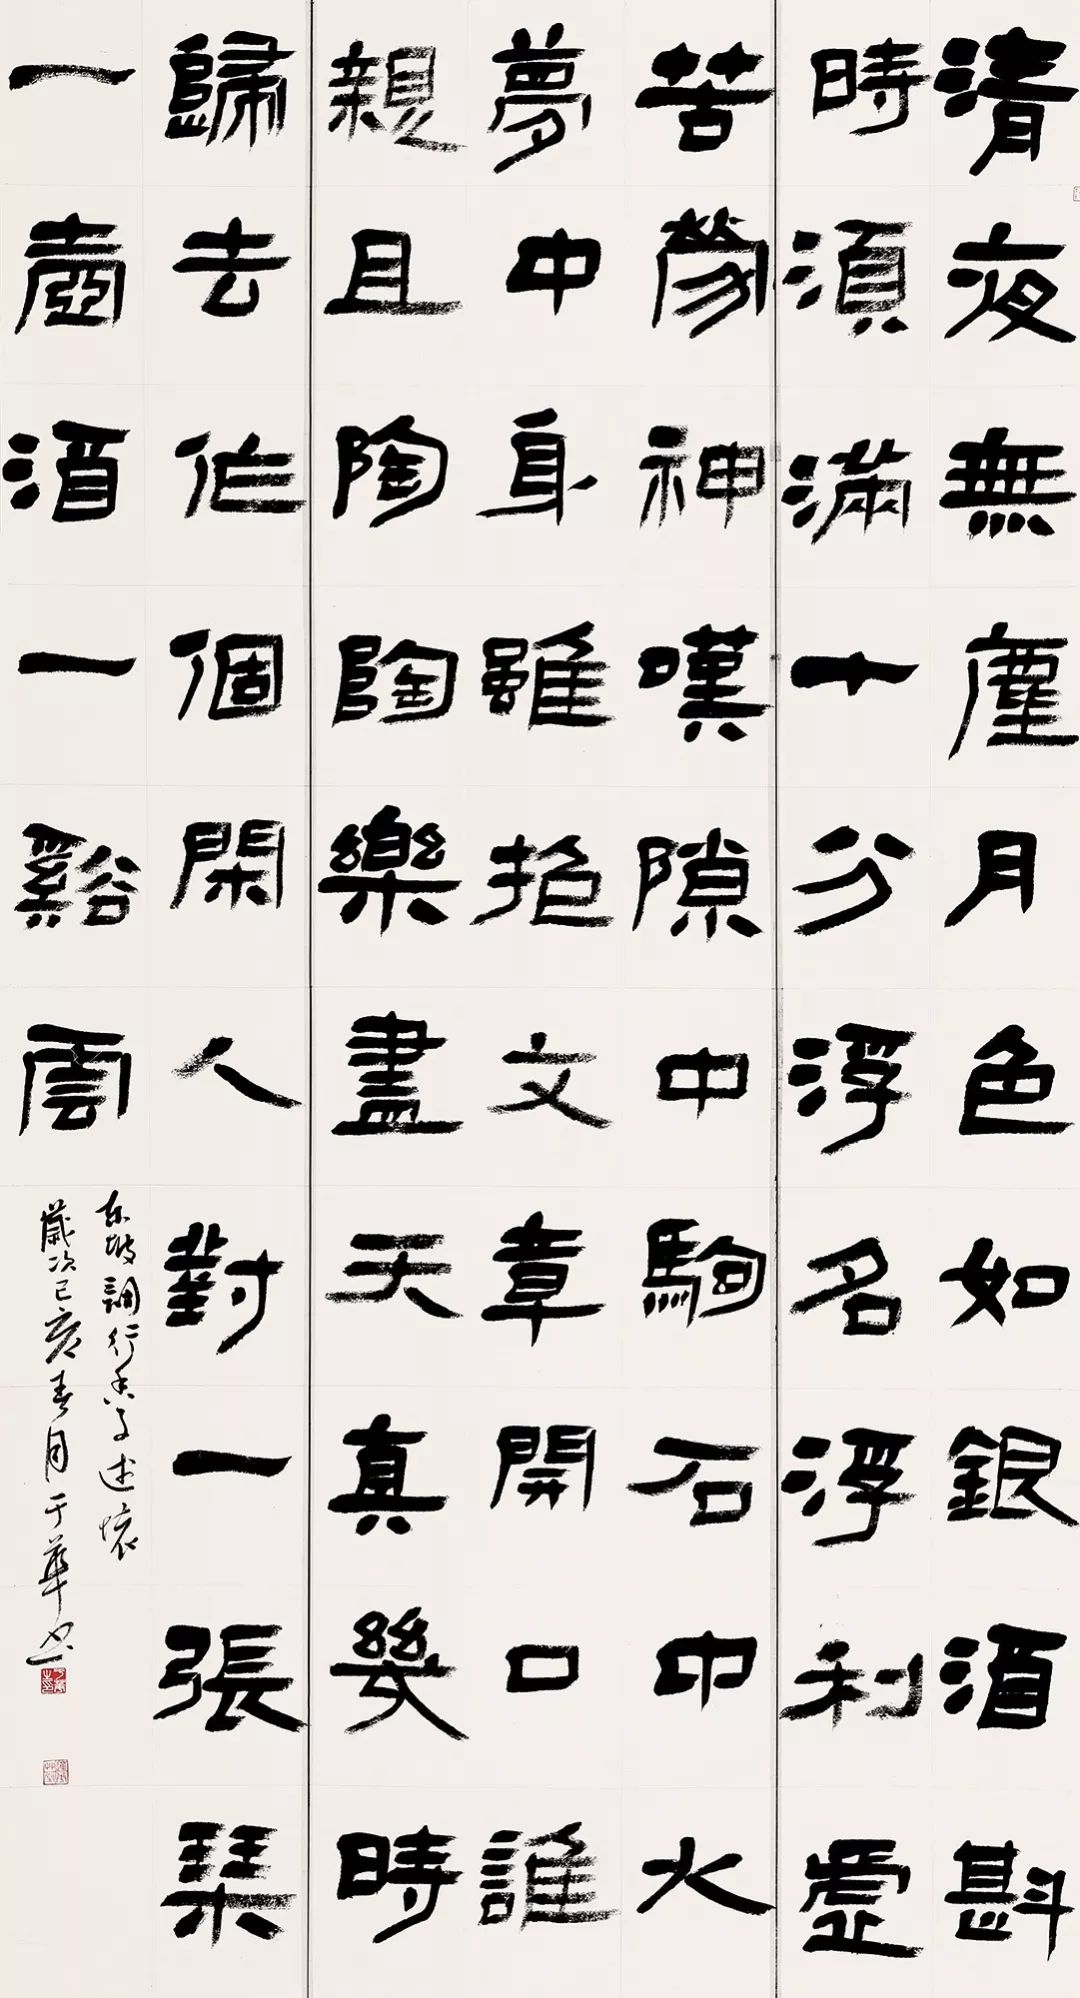 清夜無塵月色如銀酒斟
時須滿十分浮名浮利虛
苦勞神嘆隙中駒石中火
夢中身雖抱文章開口誰
親且陶陶樂盡天真幾時
歸去作個閑人對一張琴
一壺酒一谿雲
东坡詞行香子述懷
歲次己亥春月于華书